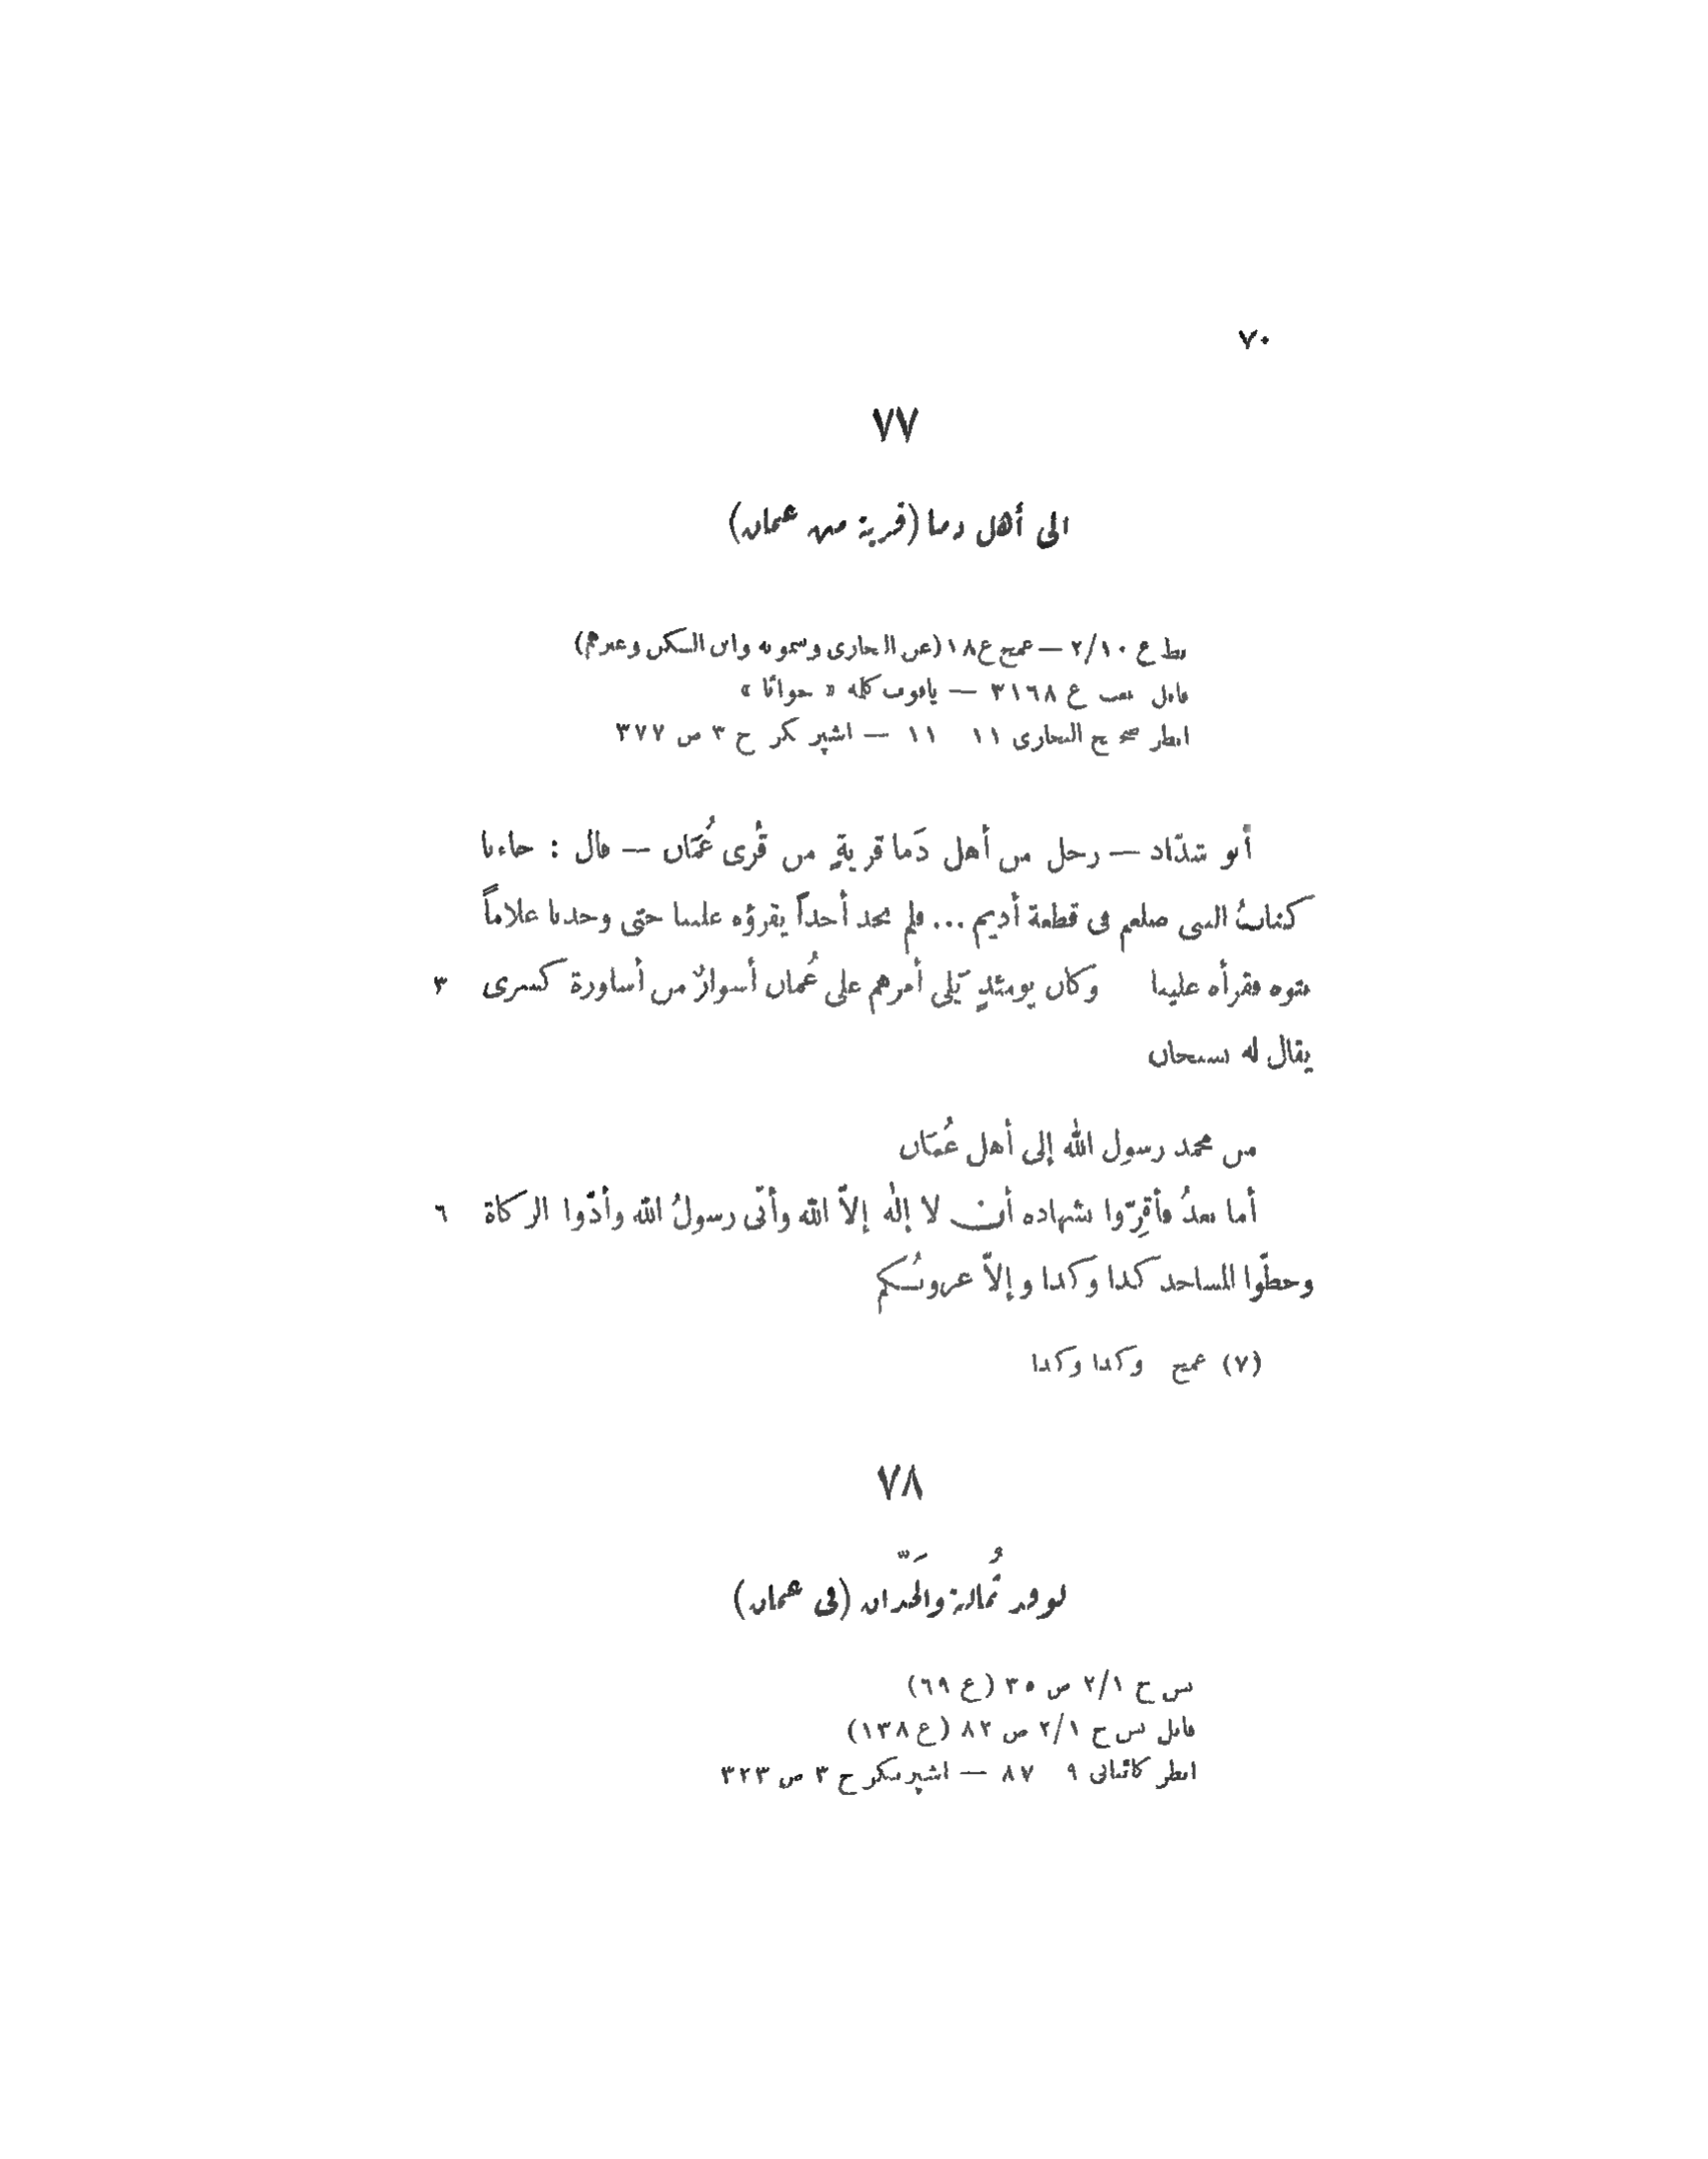 ٧٠
٧٧
الى أهل دما (قرية من عمان)
بط ع ٢/١٠ — عمخ ع ١٨ (عن البخارى وسمويه وابن السكن وغيرهم)
قابل بعب ع ٣١٦٨ — ياقوت كلمة « جواثا »
انظر صحيح البخارى ١١ ١١ — اشپر نكر ج ٣ ص ٣٧٧
أبو شدّاد — رجل من أهل دَما قريةٍ من قُرى عُمَان — قال : جاءنا
كتابُ النبى صلعم فى قطعة أديم ... فلم نجد أحداً يقرؤه علينا حتى وجدنا غلاماً
فقرأه علينا وكان يومئذٍ يَلى أمرهم على عُمان أسوارٌ من أساورة كسرى ٣
يقال له
من محمد رسولِ الله إلى أهل عُمَان
أما بعدُ فأقِرّوا بشهادة أن لا إلٰه إلاّ الله وأنّى رسولُ الله وأدّوا الزكاة ٦
وخطّوا المساجد كذا وكذا وإلاّ غزوتُكم
(٧) عمخ وكذا وكذا
٧٨
لوفد ثُمالة والحَدّان (فى عمان)
بس ج ٢/١ ص ٣٥ (ع ٦٩)
قابل بس ج ٢/١ ص ٨٢ (ع ١٣٨)
انظر كائتانى ٩ ٨٧ — اشپرنكر ج ٣ ص ٣٢٣